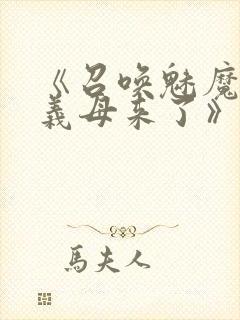 《召唤魅魔
義母来了》
馬夫人